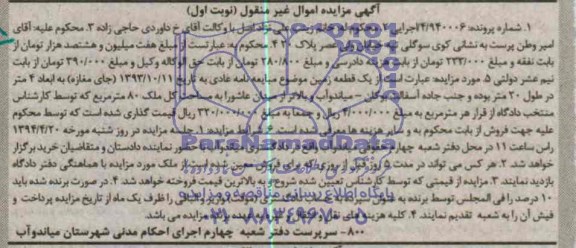 آگهی مزایده اموال غیر منقول (نوبت اول)
۱. شماره پرونده: ۲۴/۹۴۰۰۰۶ اجرایی ۲. با وکالت آقای داوردی حاجی زاده ۳. محکوم علیه: آقای
امیر وطن پرست به نشانی کوی سوگلی پلاک ۲ ۴. محکوم به عبارتست از مبلغ هفت میلیون و هشتصد هزار تومان از
بابت نفقه و مبلغ ۲۳۳/۰۰۰ تومان از بابت هزینه دادرسی و مبلغ ۲۸۰/۸۰۰ تومان از بابت حق الوکاله وکیل و مبلغ ۳۹۰/۰۰۰ تومان از بابت
نیم عشر دولتی ۵. مورد مزایده: عبارت است از یک قطعه زمین موضوع مبایعه نامه عادی به تاریخ ۱۳۹۳/۱۰/۱۱ (جای مغازه) به ابعاد ۴ متر
در طول ۲۰ متر بوده و جنب جاده آسفالته بوکان – میاندوآب بالاتر از میدان عاشورا به مساحت کل ملک ۸۰ مترمربع که توسط کارشناس
منتخب دادگاه از قرار هر مترمربع به مبلغ ۴/۰۰۰/۰۰۰ ریال و جمعا به مبلغ ۳۲۰/۰۰۰/۰۰۰ ریال قیمت گذاری شده است که توسط محکوم
علیه جهت فروش از بابت محکوم به و سایر هزینه ها معرفی شده است. ۶. شرایط مزایده: ۱. جلسه مزایده در روز شنبه مورخه ۱۳۹۴/۴/۲۰
راس ساعت ۱۱ در محل دفتر شعبه چهارم حضور نماینده دادستان و متقاضیان خرید برگزار
خواهد شد. ۲. هر کس می تواند در مدت ۵ روز قبل از روزی که برای فروش معین شده است از ملک مورد مزایده با هماهنگی دفتر دادگاه
بازدید نمایند. ۳. مزایده از قیمتی که توسط کارشناس تعیین شده شروع و به بالاترین قیمت فروخته خواهد شد ۴. در صورت برنده شده باید
۱۰ درصد را فی المجلس توسط برنده به ظرف یک ماه از تاریخ مزایده پرداخت و
فیش آن را به شعبه تقدیم نمایند. ۴. کلیه هزینه های برنده مزایده می باشد.
۸۰۰- سرپرست دفتر شعبه چهارم اجرای احکام مدنی شهرستان میاندوآب
ParsNamadData
پایگاه اطلاع رسانی مناقصه و مزایده
۰۲۱-۸۸۳۴۹۶۷۰-۵